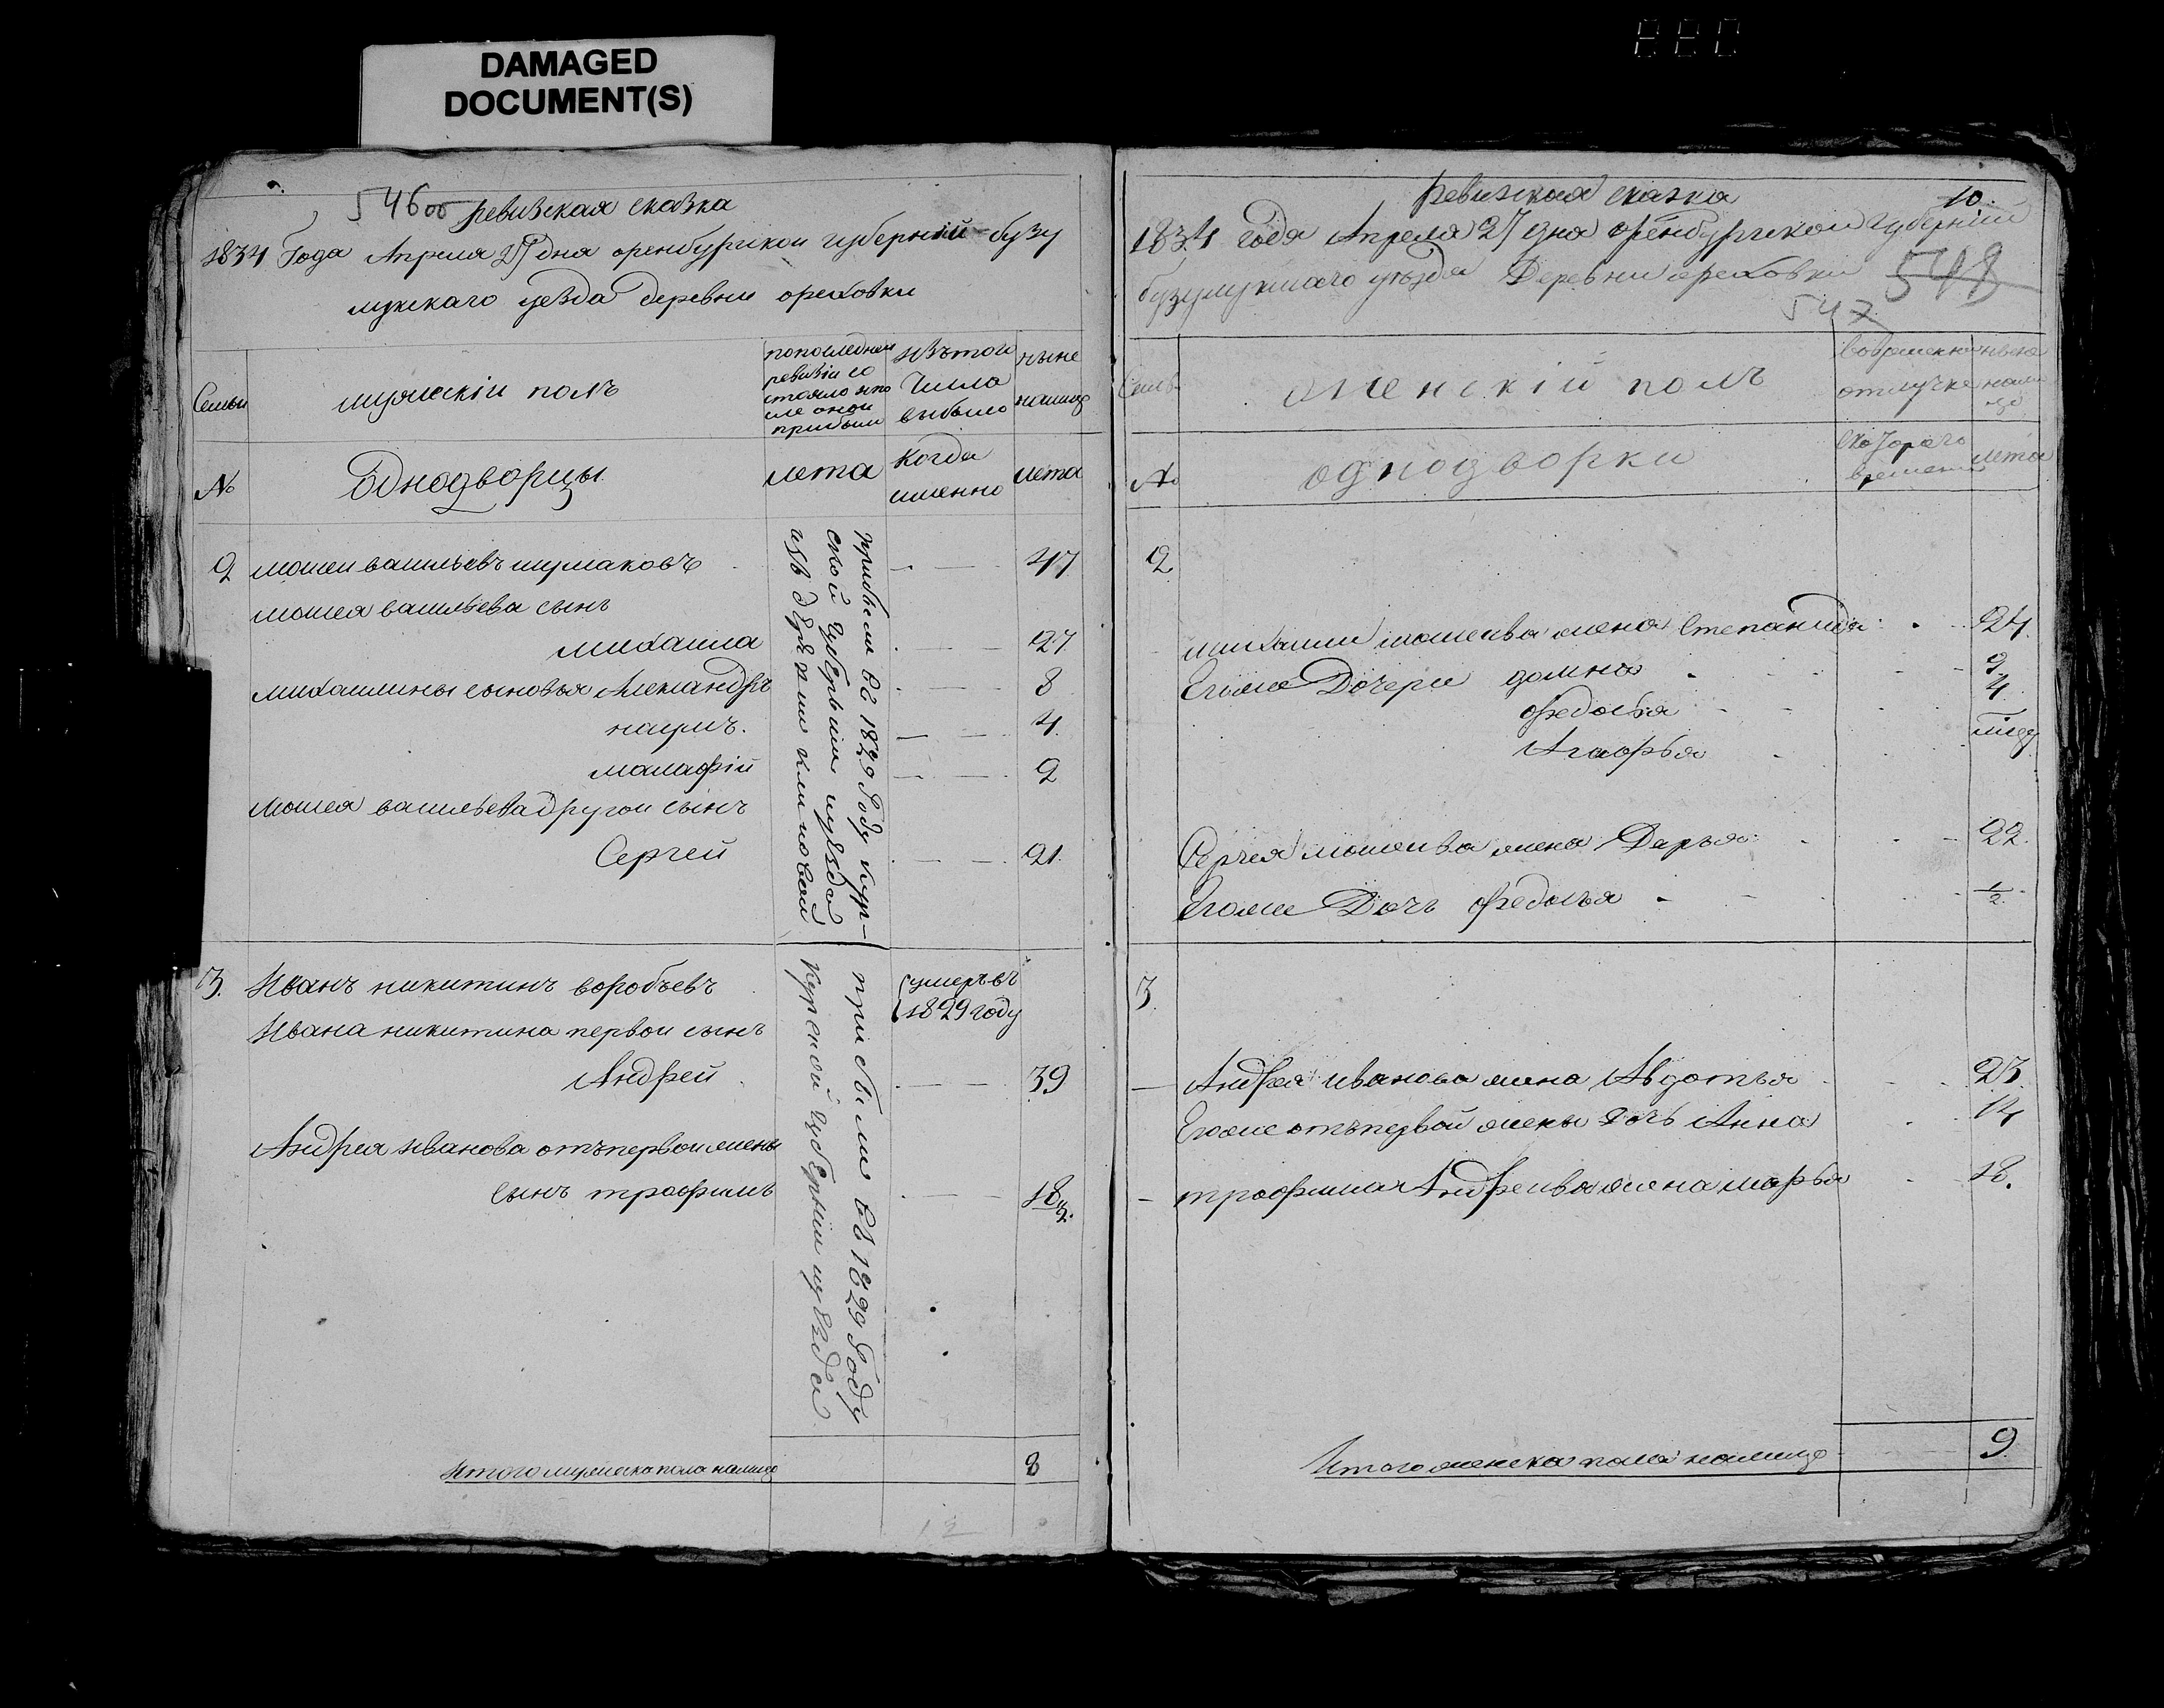 DAMAGED
DOCUMENT(S)
546 об ревизская сказка
1834 Года Апреля 27 дня оренбургской губернии бузу
лукскаго уезда деревни ореховки
Семьи
мужескiи полъ
попоследней
ревизiи со
стояло и по
сле оной
прибыли
изътого
числа
выбыло
ныне
налицо
№
Однодворцы
лета
когда
именно
лета
2 мосеи васильевъ шумаковъ 47
мосея васильева сынъ
михаила 27
михаилины сыновья Александръ 8
наумъ. 4
малафiй 2
Мосея васильева другои сынъ
Сергей 21
прибыли въ 1829 Году кур-
ской губернии
3. Иванъ никитинъ воробьевъ
умеръ въ
1829 году
Ивана никитина первои сынъ
Андрей 39
Андрея иванова отъ первои жены
сынъ трофимъ 18
прибыли въ 1829 Году
курской губернии уезда
Итого мужеска пола налицо 8
12
ревизская сказка 10.
1834 года Апреля 27 дня оренбургской губернии
бузулукскаго уезда Деревни ореховки 548
547
Семьи
женскiй полъ
во временной
отлучке
ныне
нали
цо
№
однодворки
скотораго
времени
лета
2
михаилы мосеива жена Степанида 24
Егоже Дочери домна 9
федосья 4
Агафья
Сергея мосеива жена Дарья 22
Егоже Дочь федосья 1/2
3
Андрея иванова жена Авдотья 25
Егоже отъ первой жены дочь Анна 14
трофима Андреива жена марья 18.
Итого женска пола налицо 9